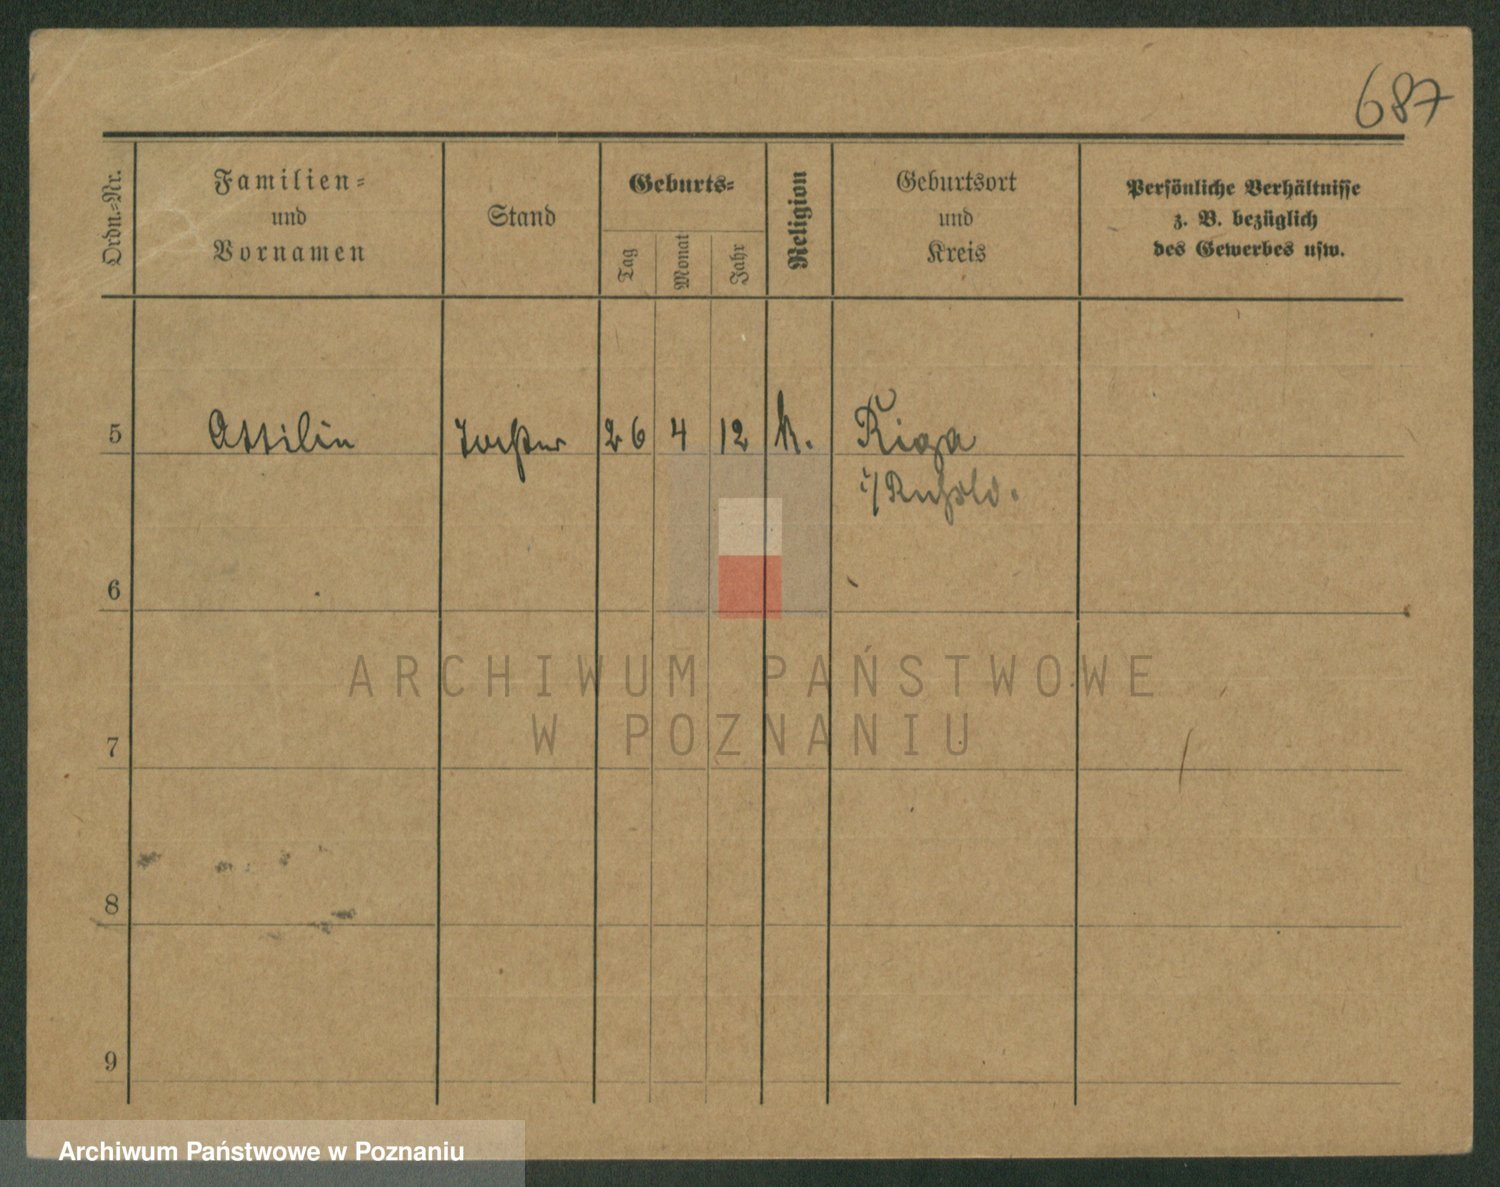 687
Ordn.-Nr.
Familien-
und
Vornamen
Stand
Geburts-
Tag
Monat
Jahr
Religion
Geburtsort
und
Kreis
Persönliche Verhältnisse
z. B. bezüglich
des Gewerbes usw.
5 Attilin Tochter 26 4 12 k. Riga
i/Rußld.
6
7
8
9
ARCHIWUM PAŃSTWOWE
W POZNANIU
Archiwum Państwowe w Poznaniu